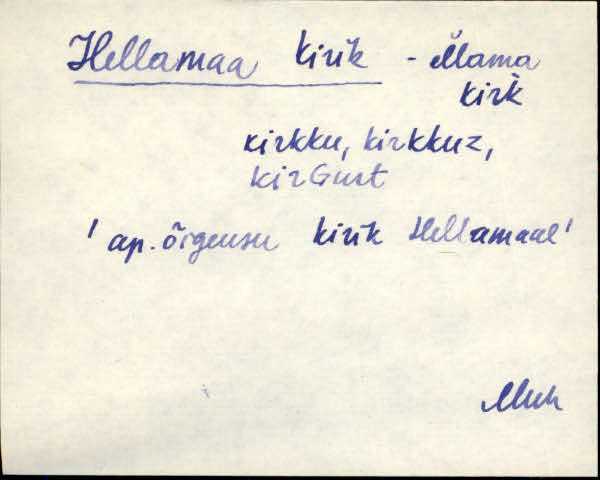 Hellamaa kirik - Ĕlama
kirk
kirkku, kirkkuz,
kirGust
' ap. õigeusu kirik Hellamaal '
Muh